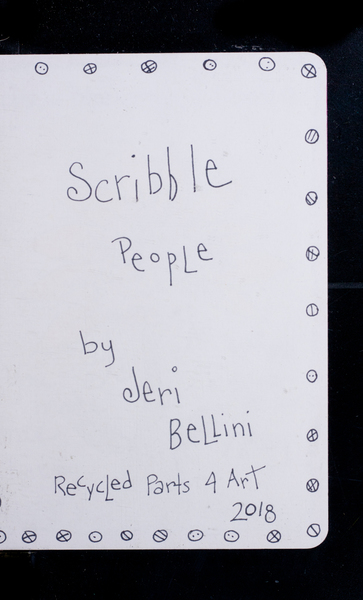 Scribble
People
by
Jeri
Bellini
Recycled Parts 4 Art
2018